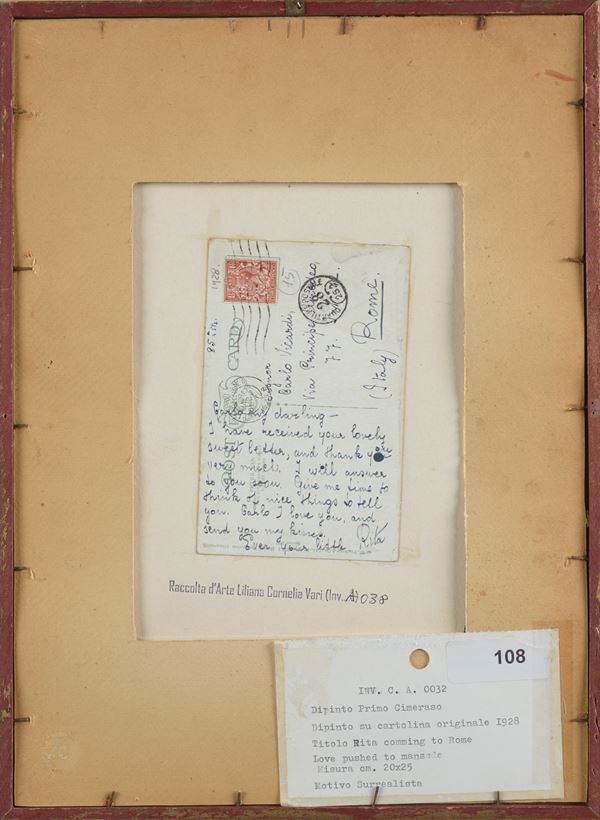 1928.
85 i.m.
POST CARD
(15)
Signor
Carlo Vicardi,
Via Principe
77.
Rome.
(Italy)
Carlo my darling –
I have received your lovely
sweet letter, and thank you
very much. I will answer
to you soon. Give me time to
think of nice things to tell
you. Carlo I love you, and
send you my kisses.
Ever your little Rita
Raccolta d'Arte Liliana Cornelia Vari (Inv. A) 038
108
INV. C. A. 0032
Dipinto Primo Cimeraso
Dipinto su cartolina originale I928
Titolo Rita comming to Rome
Love pushed to mansade
Misura cm. 20x25
Motivo Surrealista